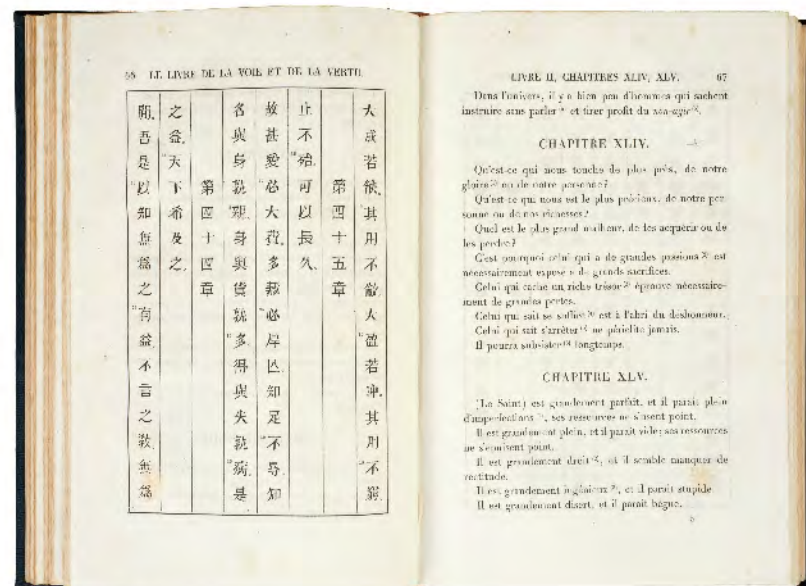 LE LIVRE DE LA VOIE ET DE LA VERTU.
間吾是以知無爲之有益不言之教無爲
之益天下希及之
第四十四章
名與身孰親身與貨孰多得與失孰病是
故甚愛必大費多藏必厚亡知足不辱知
止不殆可以長久
第四十五章
大成若缺其用不敝大盈若沖其用不窮
LIVRE II, CHAPITRES XLIV, XLV. 67
Dans l'univers, il y a bien peu d'hommes qui sachent
instruire sans parler et tirer profit du non-agir.
CHAPITRE XLIV.
Qu'est-ce qui nous touche de plus près, de notre
gloire ou de notre personne?
Qu'est-ce qui nous est le plus précieux, de notre per-
sonne ou de nos richesses?
Quel est le plus grand malheur, de les acquérir ou de
les perdre?
C'est pourquoi celui qui a de grandes passions est
nécessairement exposé à de grands sacrifices.
Celui qui cache un riche trésor éprouve nécessaire-
ment de grandes pertes.
Celui qui sait se suffire est à l'abri du déshonneur.
Celui qui sait s'arrêter ne périclite jamais.
Il pourra subsister longtemps.
CHAPITRE XLV.
(Le Saint) est grandement parfait, et il paraît plein
d'imperfections, ses ressources ne s'usent point.
Il est grandement plein, et il paraît vide; ses ressources
ne s'épuisent point.
Il est grandement droit, et il semble manquer de
rectitude.
Il est grandement ingénieux, et il paraît stupide.
Il est grandement disert, et il paraît bègue.